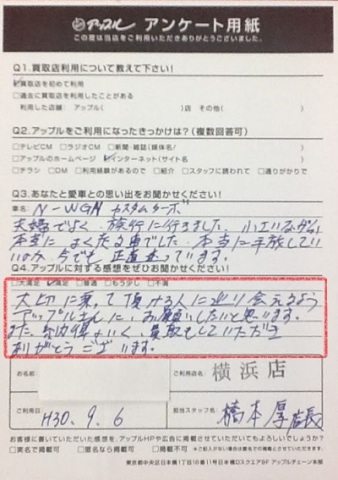 アップル アンケート用紙
この度は当店をご利用いただきありがとうございました。
Q1.買取店利用について教えて下さい!
☑買取店を初めて利用
□過去に買取店を利用したことがある
利用した店舗: アップル( )店 その他( )
Q2.アップルをご利用になったきっかけは?(複数回答可)
□テレビCM □ラジオCM □新聞・雑誌(媒体名/ )
□アップルのホームページ ☑インターネット(サイト名 )
□チラシ □DM □利用経験があるので □紹介 □スタッフに誘われて □通りがかりで
Q3.あなたと愛車との思い出をお聞かせください!
車名: N-WGN カスタムターボ
夫婦でよく旅行に行きました。小さいながら
本当によく走る車でした。本当に手放して
いいのか 今でも 正直 迷っています。
Q4.アップルに対する感想をぜひお聞かせください!
□大満足 ☑満足 □普通 □もう少し □不満
大切に乗って頂ける人に巡り会えるよう
アップルさんに、お願いしたいと思います。
また、納得のいく、買取をしていただき
ありがとうございます。
お名前
ご利用店名: 横浜店
ご利用日 H30.9.6
担当スタッフ名: 橋本厚店長
お客様に書いていただいた感想を、アップルHPや広告に掲載させていただいてもよろしいでしょうか?
□実名で掲載可 □匿名なら掲載可 □掲載不可
東京都中央区日本橋1丁目18番11号日本橋DスクエアBF アップルチェーン本部